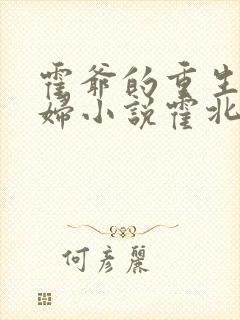 霍爷的重生
婦小说霍北
何彦麗